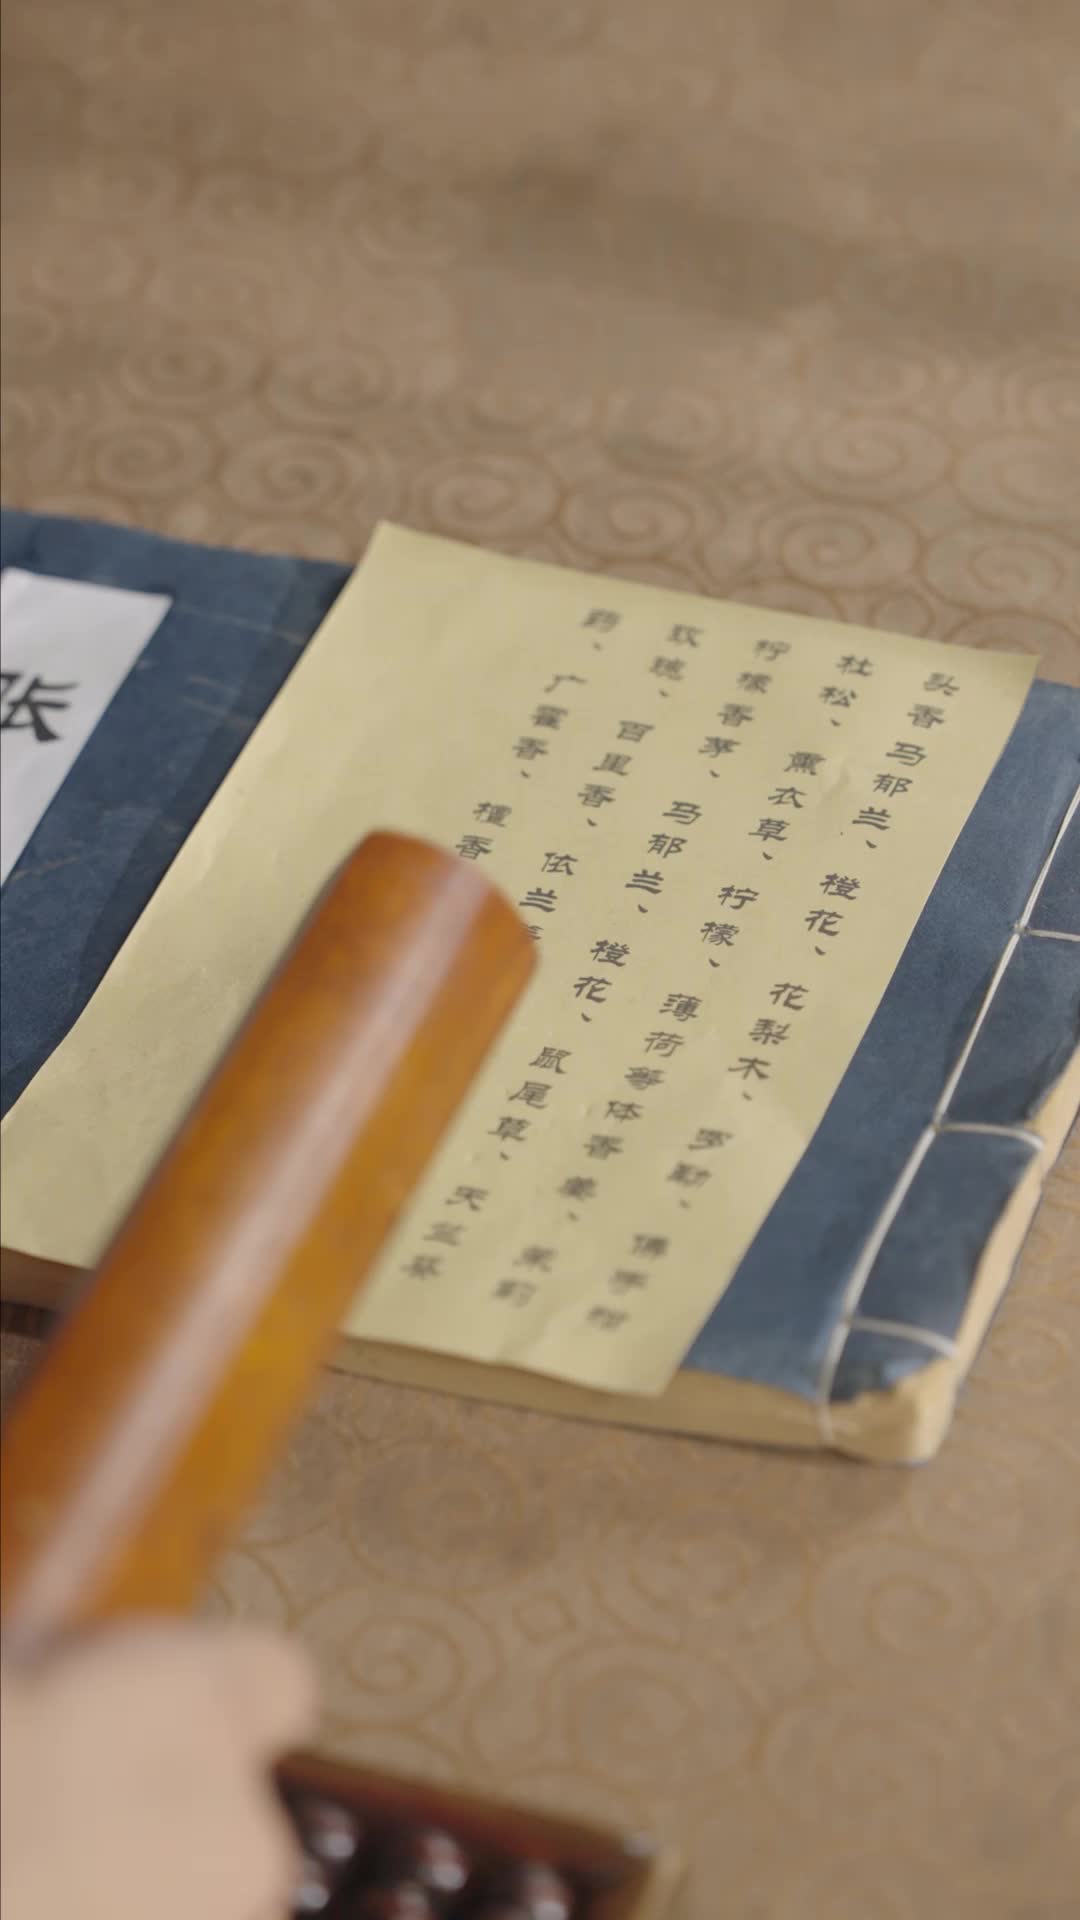 头香马郁兰、橙花、花梨木、罗勒、佛手柑
杜松、熏衣草、柠檬、薄荷等体香姜、茉莉
柠檬香茅、马郁兰、橙花、鼠尾草、天竺葵
玫瑰、百里香、依兰
药、广藿香、檀香